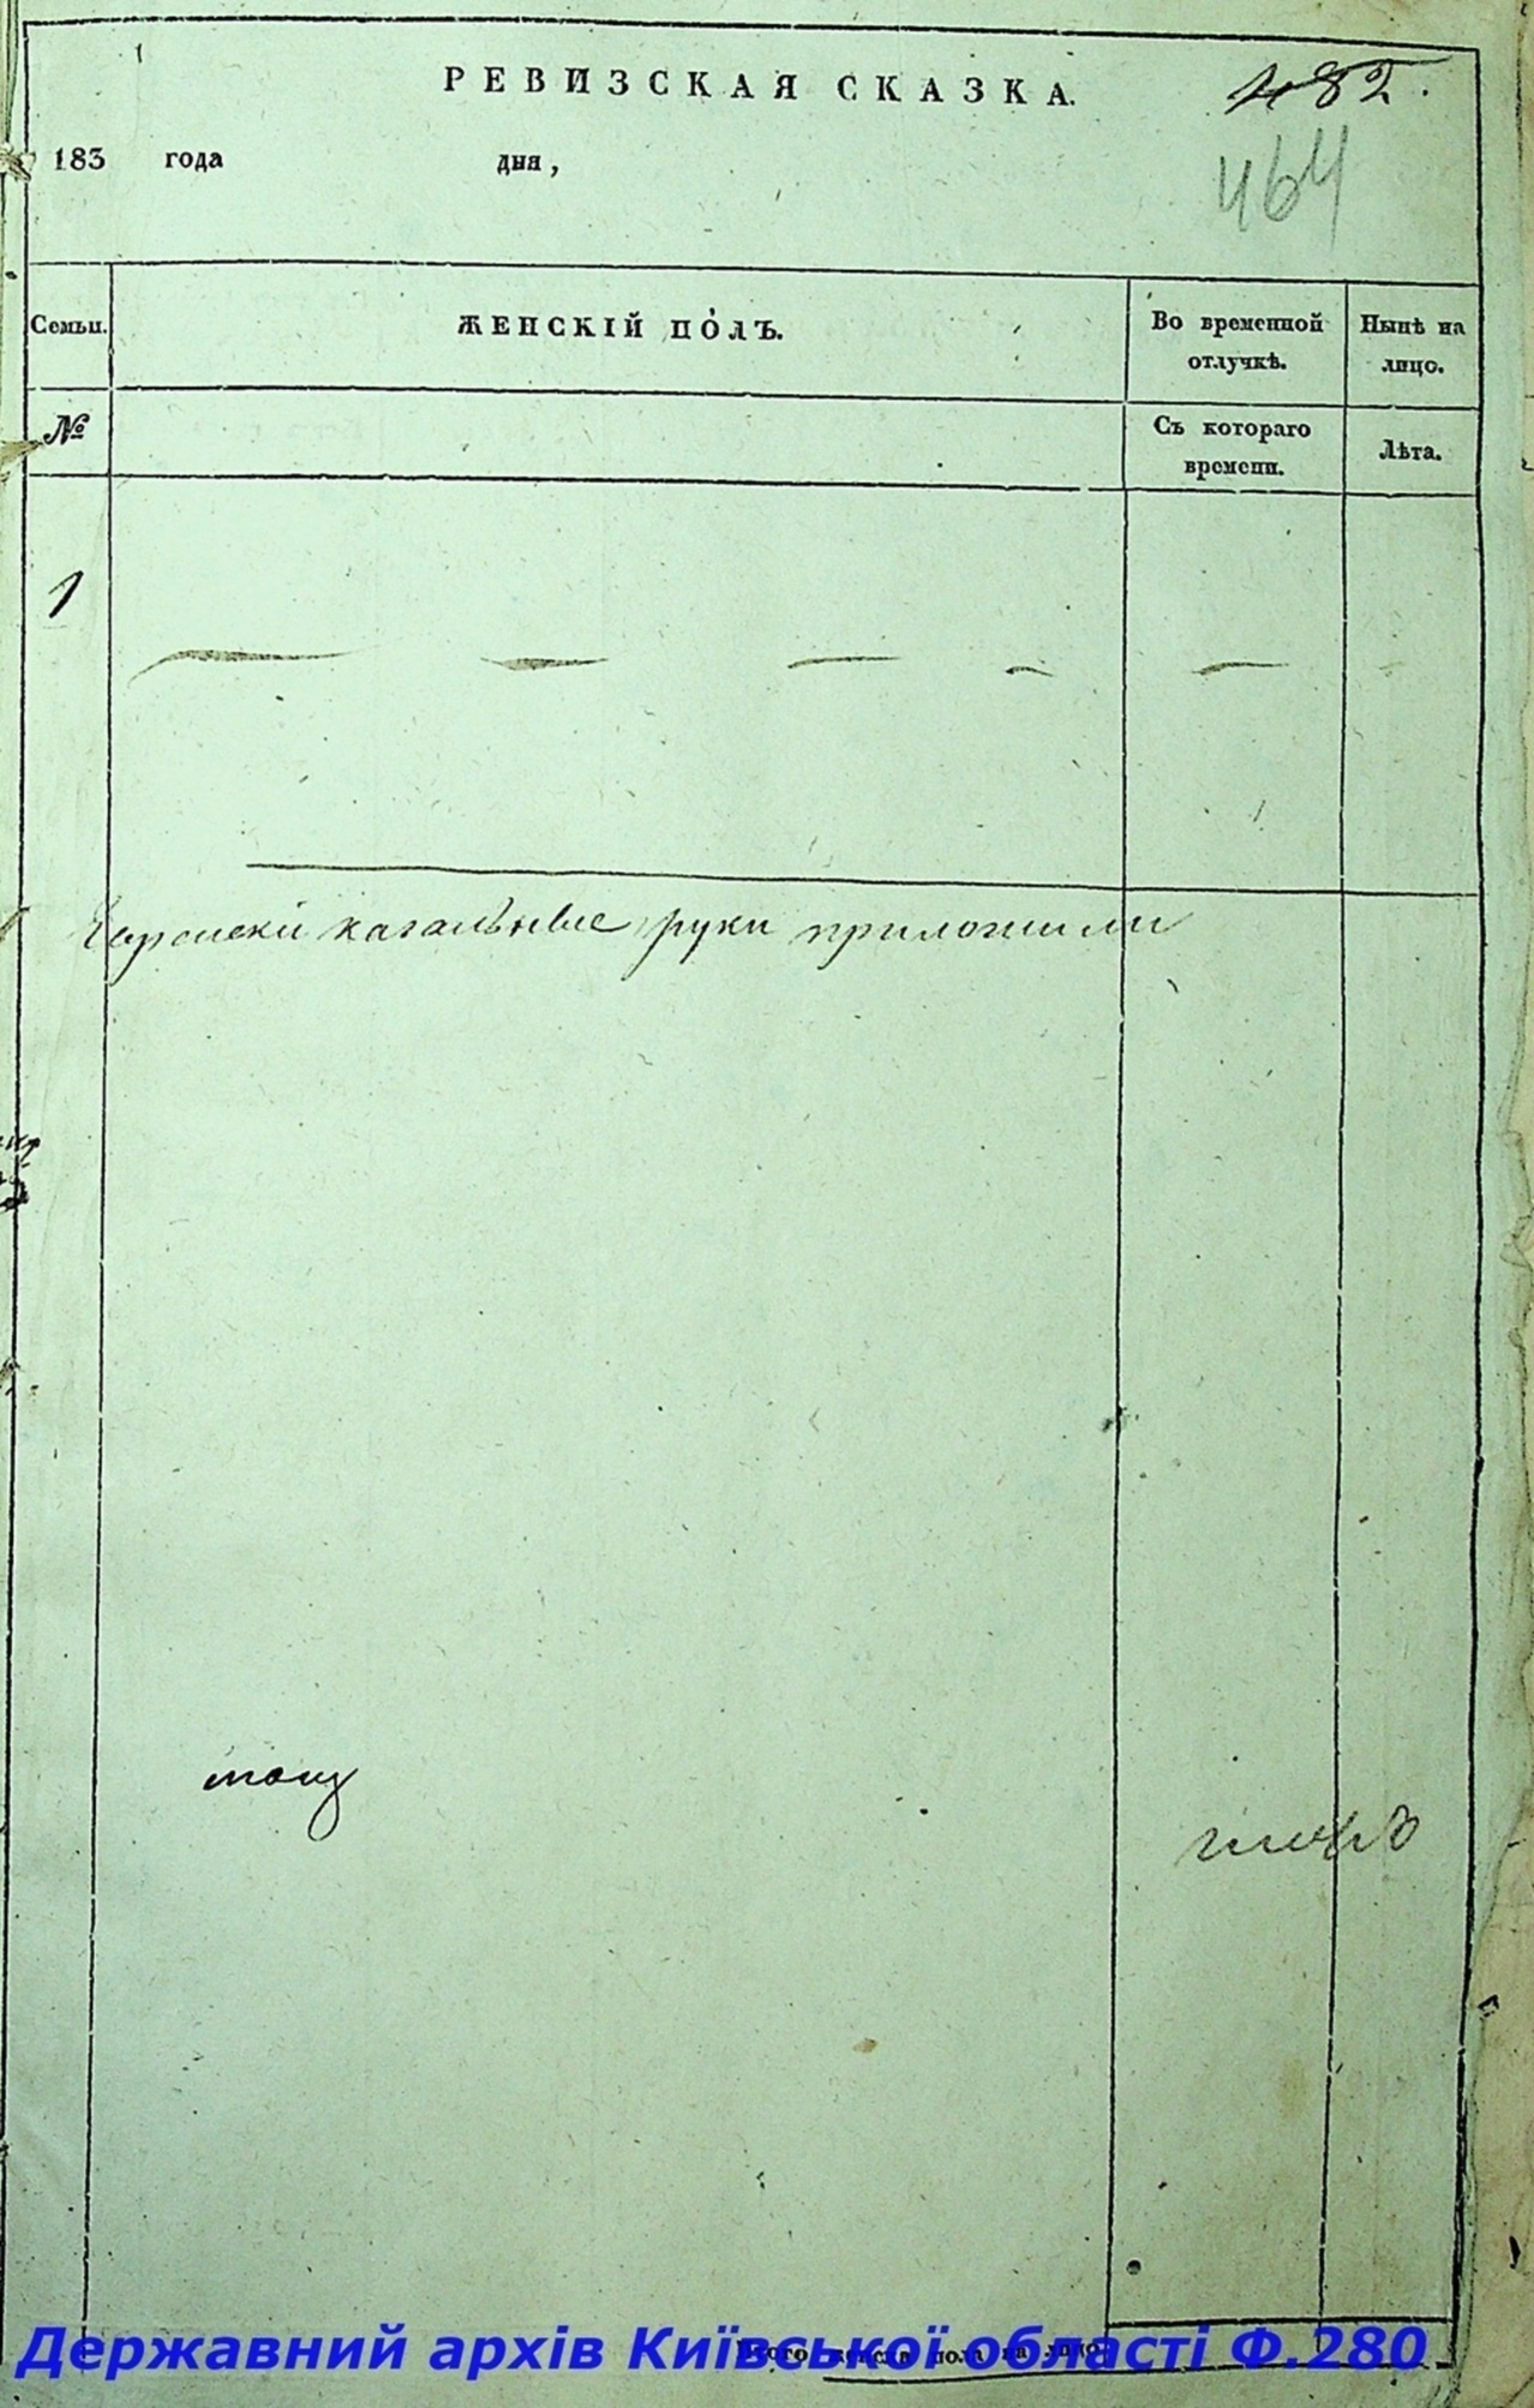 РЕВИЗСКАЯ СКАЗКА.
482.
183 года дня,
464
Семьи.
ЖЕНСКІЙ ПОЛЪ.
Во временной отлучкѣ.
Нынѣ на лицо.
№
Съ котораго времени.
Лѣта.
1
кагальные руки приложили
Итого женска пола на лицо
Державний архів Київської області Ф.280